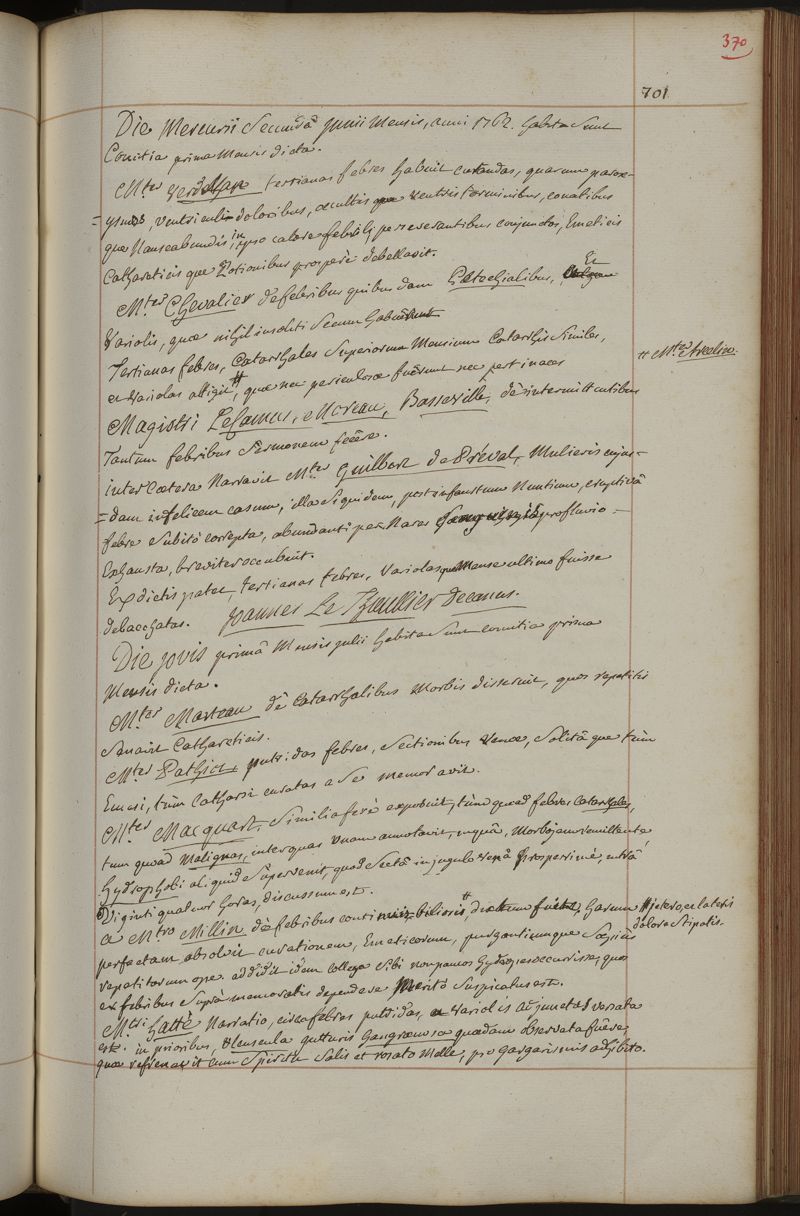 370
701
Die Mercurii Secundâ Junii Mensis, anni 1762. habita sunt
Comitia prima Mensis dicta.
Mter Verdelhan tertianas febres habuit curandas, quarum parox-
=ysmos, ventriculi doloribus, occultis que ventris torminibus, conatibus
que Nauseabundis in ipso calore febrili, perseverantibus conjunctos, Emeticis
Catharcticis que Potionibus prospere debellavit.
Mter Chevalier de febribus quibusdam Petechialibus, Et
Variolis, quæ nihil insoliti secum habuêrunt
Tertianas febres, Catarrhales Superiorum Mensium Catarrhis Similes,
et Variolas attigit #, quæ nec periculosæ fuêrunt nec pertinaces
# Mter Avcelin.
Magistri LeCamus, Moreau, Basseville, dê intermittentibus
Tantum febribus Sermonem fecêre.
inter Cætera Narravit Mter Guilbert de Préval, Mulieris cujus-
=dam infelicem casum, illa siquidem, post infaustum Nuntium, eruptivâ
febre Subitò correpta, abundanti per Nares Sanguinis profluvio
Exhausta, breviter occubuit.
Ex dictis patet, tertianas febres, Variolasque Mense ultimo fuisse
debacchatas. Joannes Le Thieullier decanus.
Die Jovis primâ Mensis Julii habita Sunt comitia prima
Mensis dicta.
Mter Marteau dê Catarrhalibus Morbis disseruit, quos repetitis
Sanavit Catharcticis.
Mter Pathiot, putridas febres, Sectionibus Venæ, Solitâ que tùm
Emesi, tùm Catharsi curatas a se memoravit.
Mter Macquart, Similia ferè exposuit, tùm quoad febres Catarrhales,
tum quoad Malignas, inter quas unam annotavit, in quâ, Morbo jam remittente
hydrophobi aliquid Supervenit, quod Sectâ in jugulo venâ prosperrimè, intrà
Viginti quatuor horas, discussum est.
A Mtro Millin dê febribus continuis biliosis # dictum fuit, harum
# ictero, et lateris dolore Stipatis.
perfectam absolvit curationem, Emeticorum, purgantiumque Sæpius
repetitorum ope. addidit idem collega Sibi non paucos hydropes occurrisse, quos
ex febribus Suprà memoratis dependere Meritò Suspicatus est.
Mtri Gatté Narratio, circa febres putridas, et Variolis adjunctas versata
est. in prioribus, Ulcuscula gutturis Gangrænosa quædam observata fuêre,
quæ refrenavit cum Spiritu Salis et rosato Melle, pro gargarismis adhibito.